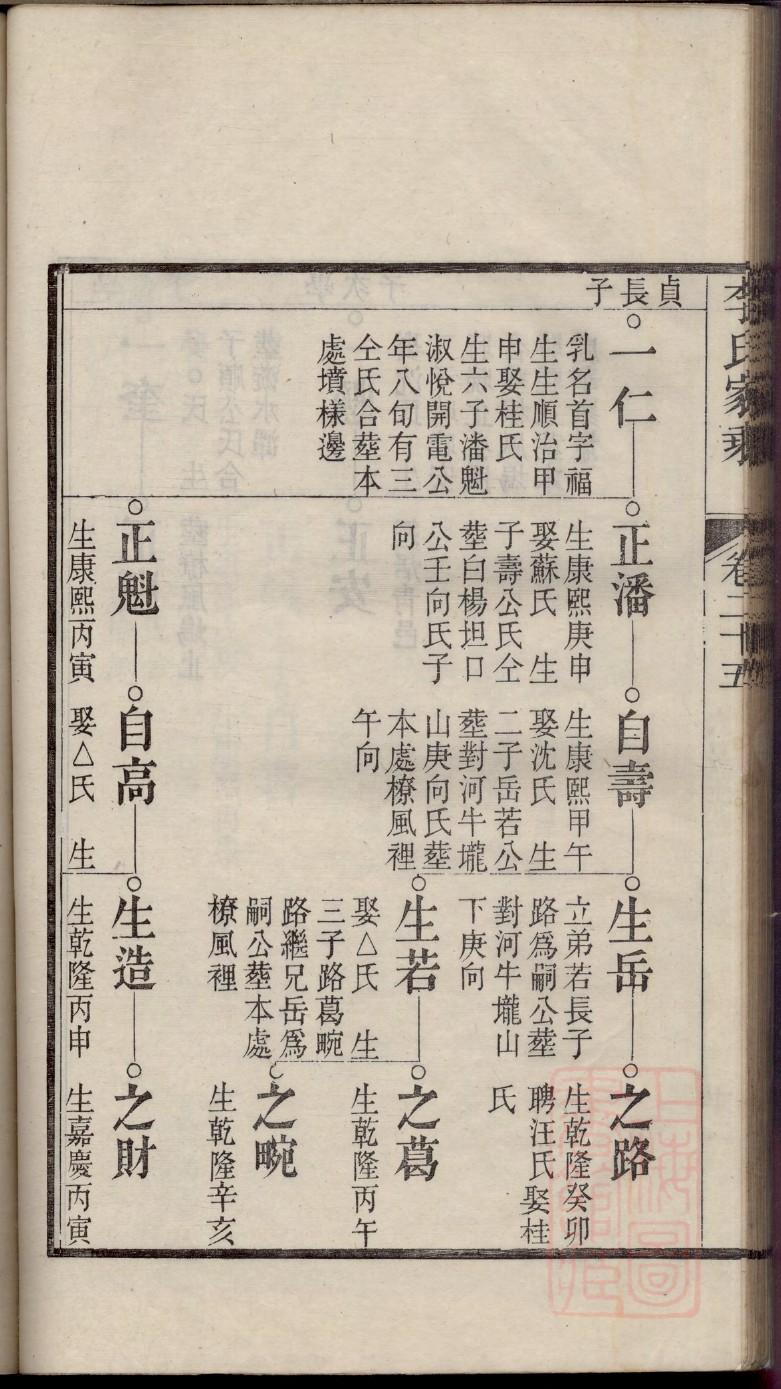 李氏家乘
卷二十五
貞長子
一仁
乳名首字福
生生順治甲
申娶桂氏
生六子潘魁
淑悅開電公
年八旬有三
仝氏合塟本
處墳樣邊
正潘
生康熙庚申
娶蘇氏 生
子壽公氏仝
塟白楊坦口
公壬向氏子
向
自壽
生康熙甲午
娶沈氏 生
二子岳若公
塟對河牛壠
山庚向氏塟
本處橑風裡
午向
生岳
立弟若長子
路爲嗣公塟
對河牛壠山
下庚向
之路
生乾隆癸卯
聘汪氏娶桂
氏
生若
娶△氏 生
三子路葛畹
路繼兄岳爲
嗣公塟本處
橑風裡
之葛
生乾隆丙午
之畹
生乾隆辛亥
正魁
生康熙丙寅
自高
娶△氏 生
生造
生乾隆丙申
之財
生嘉慶丙寅